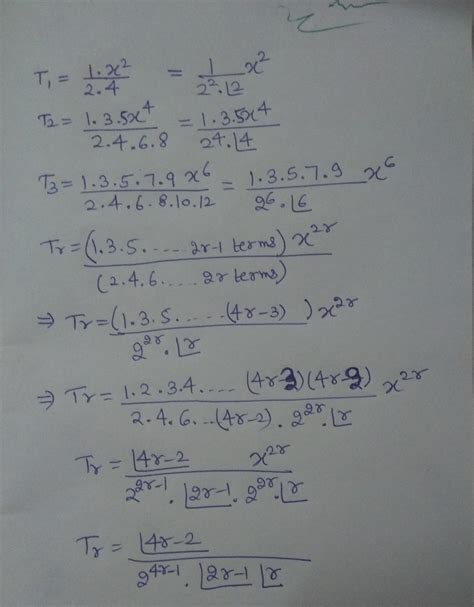 T₁ = 1.x²/2.4 = 1/(2².⌊2) x²
T₂ = 1.3.5x⁴/2.4.6.8 = 1.3.5x⁴/(2⁴.⌊4)
T₃ = 1.3.5.7.9 x⁶/2.4.6.8.10.12 = 1.3.5.7.9/(2⁶.⌊6) x⁶
Tr = (1.3.5..... 2r-1 terms) x²ʳ/(2.4.6..... 2r terms)
⇒ Tr = (1.3.5......(4r-3)) x²ʳ/(2²ʳ.⌊r)
⇒ Tr = 1.2.3.4.... (4r-3)(4r-2)/(2.4.6...(4r-2).2²ʳ.⌊r) x²ʳ
Tr = ⌊4r-2 x²ʳ/(2²ʳ⁻¹.⌊2r-1.2²ʳ.⌊r)
Tr = ⌊4r-2/(2⁴ʳ⁻¹.⌊2r-1 ⌊r)